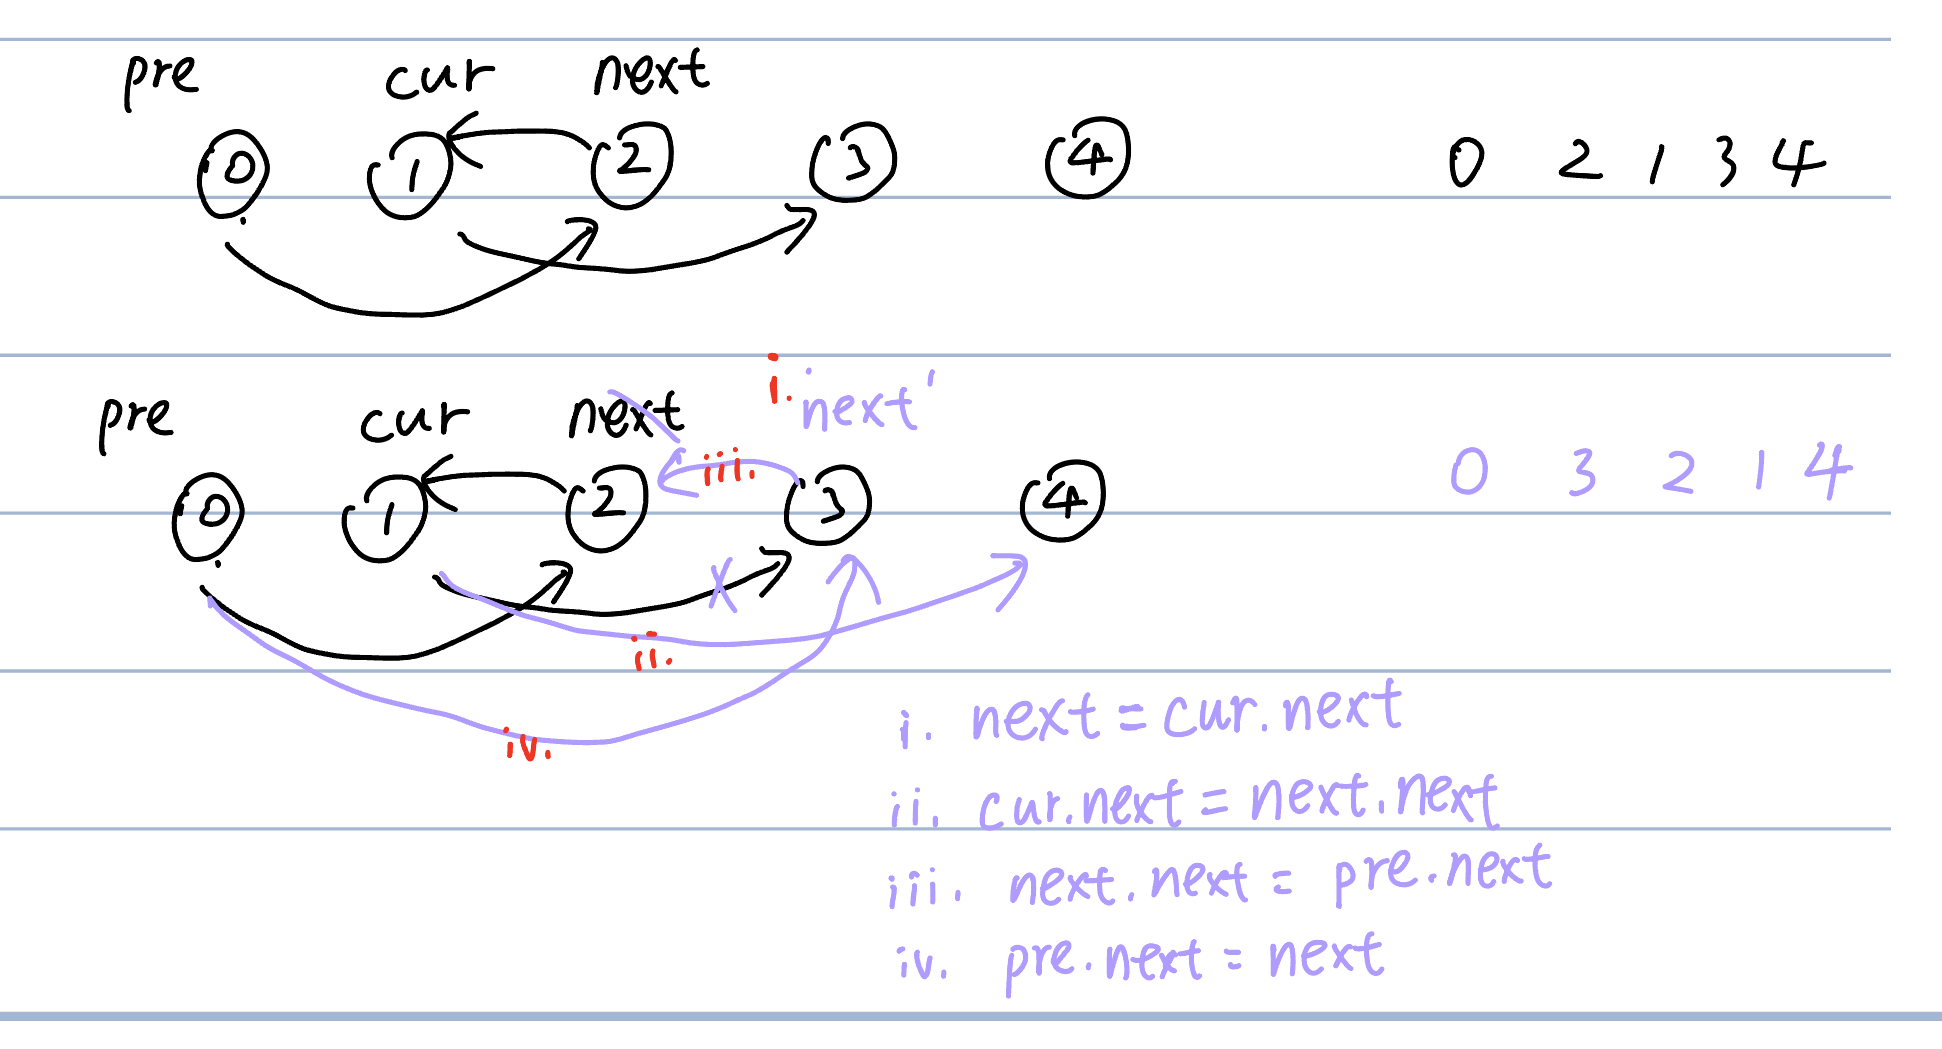 pre cur next
0 1 2 3 4 0 2 1 3 4
i. next'
pre cur next
iii.
0 1 2 3 4 0 3 2 1 4
ii.
iv.
i. next = cur.next
ii. cur.next = next.next
iii. next.next = pre.next
iv. pre.next = next